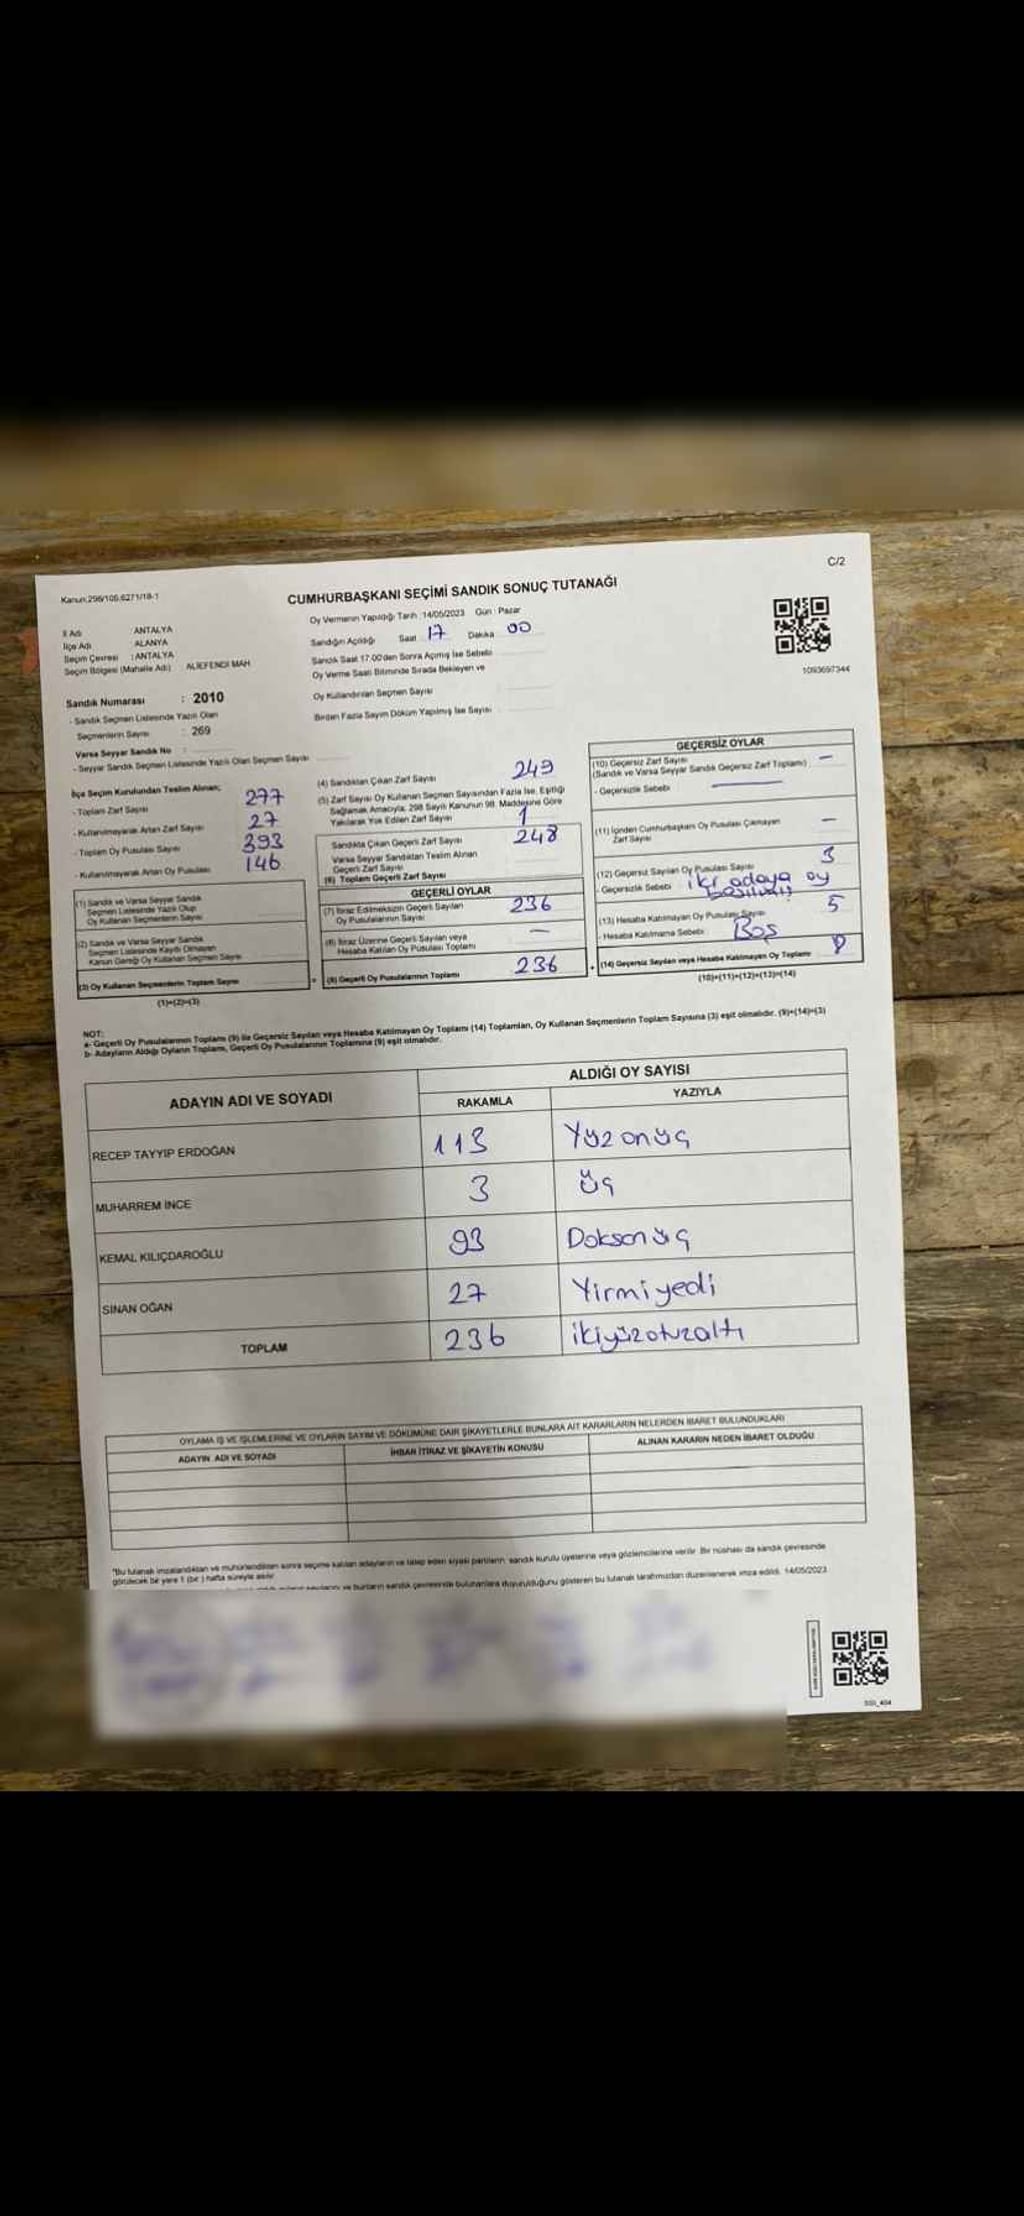 C/2
Kanun:298/105,6271/18-1
CUMHURBAŞKANI SEÇİMİ SANDIK SONUÇ TUTANAĞI
İl Adı : ANTALYA
İlçe Adı : ALANYA
Seçim Çevresi : ANTALYA
Seçim Bölgesi (Mahalle Adı) ALİEFENDİ MAH
Sandık Numarası : 2010
- Sandık Seçmen Listesinde Yazılı Olan
Seçmenlerin Sayısı : 269
Varsa Seyyar Sandık No :
- Seyyar Sandık Seçmen Listesinde Yazılı Olan Seçmen Sayısı
Oy Vermenin Yapıldığı Tarih :14/05/2023 Gün : Pazar
Sandığın Açıldığı Saat 17 Dakika 00
Sandık Saat 17.00'den Sonra Açılmış İse Sebebi
Oy Verme Saati Bitiminde Sırada Bekleyen ve
Oy Kullandırılan Seçmen Sayısı
Birden Fazla Sayım Döküm Yapılmış İse Sayısı
1093697344
İlçe Seçim Kurulundan Teslim Alınan;
- Toplam Zarf Sayısı 277
- Kullanılmayarak Artan Zarf Sayısı 27
- Toplam Oy Pusulası Sayısı 393
- Kullanılmayarak Artan Oy Pusulası 146
(1) Sandık ve Varsa Seyyar Sandık
Seçmen Listesinde Yazılı Olup
Oy Kullanan Seçmenlerin Sayısı
(2) Sandık ve Varsa Seyyar Sandık
Seçmen Listesinde Kayıtlı Olmayan
Kanun Gereği Oy Kullanan Seçmen Sayısı
(3) Oy Kullanan Seçmenlerin Toplam Sayısı
(1)+(2)=(3)
(4) Sandıktan Çıkan Zarf Sayısı 249
(5) Zarf Sayısı Oy Kullanan Seçmen Sayısından Fazla İse, Eşitliği
Sağlamak Amacıyla; 298 Sayılı Kanunun 98. Maddesine Göre
Yakılarak Yok Edilen Zarf Sayısı 1
Sandıkta Çıkan Geçerli Zarf Sayısı 248
Varsa Seyyar Sandıktan Teslim Alınan
Geçerli Zarf Sayısı
(6) Toplam Geçerli Zarf Sayısı
GEÇERLİ OYLAR
(7) İtiraz Edilmeksizin Geçerli Sayılan
Oy Pusulalarının Sayısı 236
(8) İtiraz Üzerine Geçerli Sayılan veya
Hesaba Katılan Oy Pusulası Toplamı —
(9) Geçerli Oy Pusulalarının Toplamı 236
GEÇERSİZ OYLAR
(10) Geçersiz Zarf Sayısı —
(Sandık ve Varsa Seyyar Sandık Geçersiz Zarf Toplamı)
- Geçersizlik Sebebi
(11) İçinden Cumhurbaşkanı Oy Pusulası Çıkmayan
Zarf Sayısı —
(12) Geçersiz Sayılan Oy Pusulası Sayısı 3
- Geçersizlik Sebebi iki adaya oy
basılmış
(13) Hesaba Katılmayan Oy Pusulası Sayısı 5
- Hesaba Katılmama Sebebi Boş
(14) Geçersiz Sayılan veya Hesaba Katılmayan Oy Toplamı 8
(10)+(11)+(12)+(13)=(14)
NOT:
a- Geçerli Oy Pusulalarının Toplamı (9) ile Geçersiz Sayılan veya Hesaba Katılmayan Oy Toplamı (14) Toplamları, Oy Kullanan Seçmenlerin Toplam Sayısına (3) eşit olmalıdır. (9)+(14)=(3)
b- Adayların Aldığı Oyların Toplamı, Geçerli Oy Pusulalarının Toplamına (9) eşit olmalıdır.
ADAYIN ADI VE SOYADI ALDIĞI OY SAYISI
RAKAMLA YAZIYLA
RECEP TAYYIP ERDOĞAN 113 Yüz onüç
MUHARREM İNCE 3 üç
KEMAL KILIÇDAROĞLU 93 Doksan üç
SİNAN OĞAN 27 Yirmi yedi
TOPLAM 236 ikiyüzotuzaltı
OYLAMA İŞ VE İŞLEMLERİNE VE OYLARIN SAYIM VE DÖKÜMÜNE DAİR ŞİKAYETLERLE BUNLARA AİT KARARLARIN NELERDEN İBARET BULUNDUKLARI
ADAYIN ADI VE SOYADI İHBAR İTİRAZ VE ŞİKAYETİN KONUSU ALINAN KARARIN NEDEN İBARET OLDUĞU
"Bu tutanak imzalandıktan ve mühürlendikten sonra seçime katılan adayların ve talep eden siyasi partilerin sandık kurulu üyelerine veya gözlemcilerine verilir. Bir nüshası da sandık çevresinde
görülecek bir yere 1 (bir ) hafta süreyle asılır.
ve bunların sandık çevresinde bulunanlara duyurulduğunu gösteren bu tutanak tarafımızdan düzenlenerek imza edildi. 14/05/2023